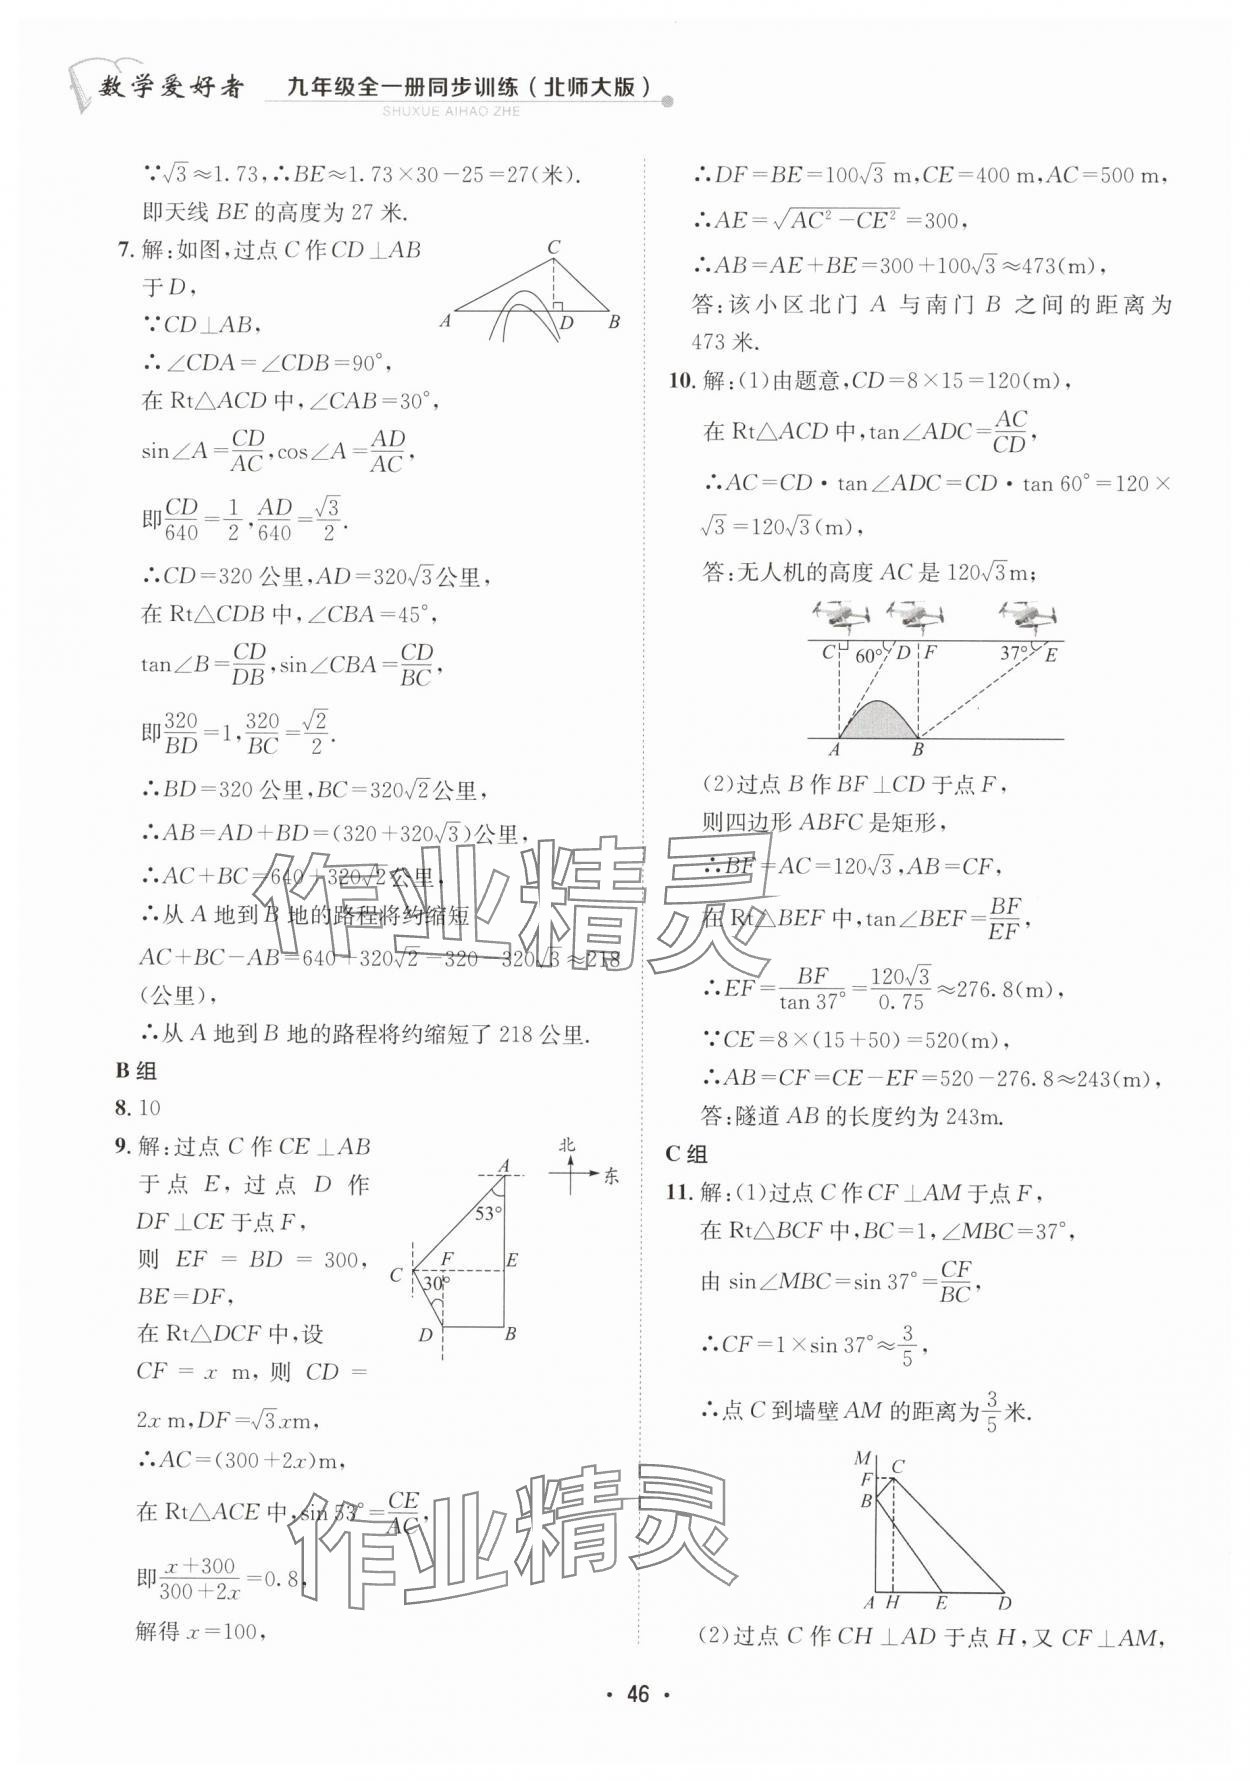 数学爱好者
九年级全一册同步训练（北师大版）
SHUXUE AIHAO ZHE
∵√3≈1.73,∴BE≈1.73×30－25=27(米).
即天线 BE 的高度为 27 米.
7. 解:如图,过点 C 作 CD⊥AB
于 D,
∵CD⊥AB,
∴∠CDA=∠CDB=90°,
在 Rt△ACD 中,∠CAB=30°,
sin∠A=CD/AC,cos∠A=AD/AC,
即CD/640=1/2,AD/640=√3/2.
∴CD=320 公里,AD=320√3公里,
在 Rt△CDB 中,∠CBA=45°,
tan∠B=CD/DB,sin∠CBA=CD/BC,
即320/BD=1,320/BC=√2/2.
∴BD=320 公里,BC=320√2公里,
∴AB=AD+BD=(320+320√3)公里,
∴AC+BC=640+320√2公里,
∴从 A 地到 B 地的路程将约缩短
AC+BC－AB=640+320√2－320－320√3≈218
(公里),
∴从 A 地到 B 地的路程将约缩短了 218 公里.
C
A
D
B
B 组
8. 10
9. 解:过点 C 作 CE⊥AB
于点 E,过点 D 作
DF⊥CE于点F,
则 EF = BD = 300,
BE=DF,
在 Rt△DCF 中,设
CF = x m,则 CD =
2x m,DF=√3xm,
∴AC=(300+2x)m,
在 Rt△ACE 中,sin 53°=CE/AC,
即(x+300)/(300+2x)=0.8,
解得 x=100,
北
东
A
53°
F
E
C
30°
D
B
∴DF=BE=100√3 m,CE=400 m,AC=500 m,
∴AE=√(AC²－CE²)=300,
∴AB=AE+BE=300+100√3≈473(m),
答:该小区北门 A 与南门 B 之间的距离为
473 米.
10. 解:(1)由题意,CD=8×15=120(m),
在 Rt△ACD 中,tan∠ADC=AC/CD,
∴AC=CD·tan∠ADC=CD·tan 60°=120×
√3=120√3(m),
答:无人机的高度 AC 是 120√3m;
C
60°
D
F
37°
E
A
B
(2)过点 B 作 BF⊥CD 于点 F,
则四边形 ABFC 是矩形,
∴BF=AC=120√3,AB=CF,
在 Rt△BEF 中,tan∠BEF=BF/EF,
∴EF=BF/tan 37°=120√3/0.75≈276.8(m),
∵CE=8×(15+50)=520(m),
∴AB=CF=CE－EF=520－276.8≈243(m),
答:隧道 AB 的长度约为 243m.
C 组
11. 解:(1)过点 C 作 CF⊥AM 于点 F,
在 Rt△BCF 中,BC=1,∠MBC=37°,
由 sin∠MBC=sin 37°=CF/BC,
∴CF=1×sin 37°≈3/5,
∴点 C 到墙壁 AM 的距离为3/5米.
M
F
C
B
A
H
E
D
(2)过点 C 作 CH⊥AD 于点 H,又 CF⊥AM,
作业精灵
作业精灵
· 46 ·